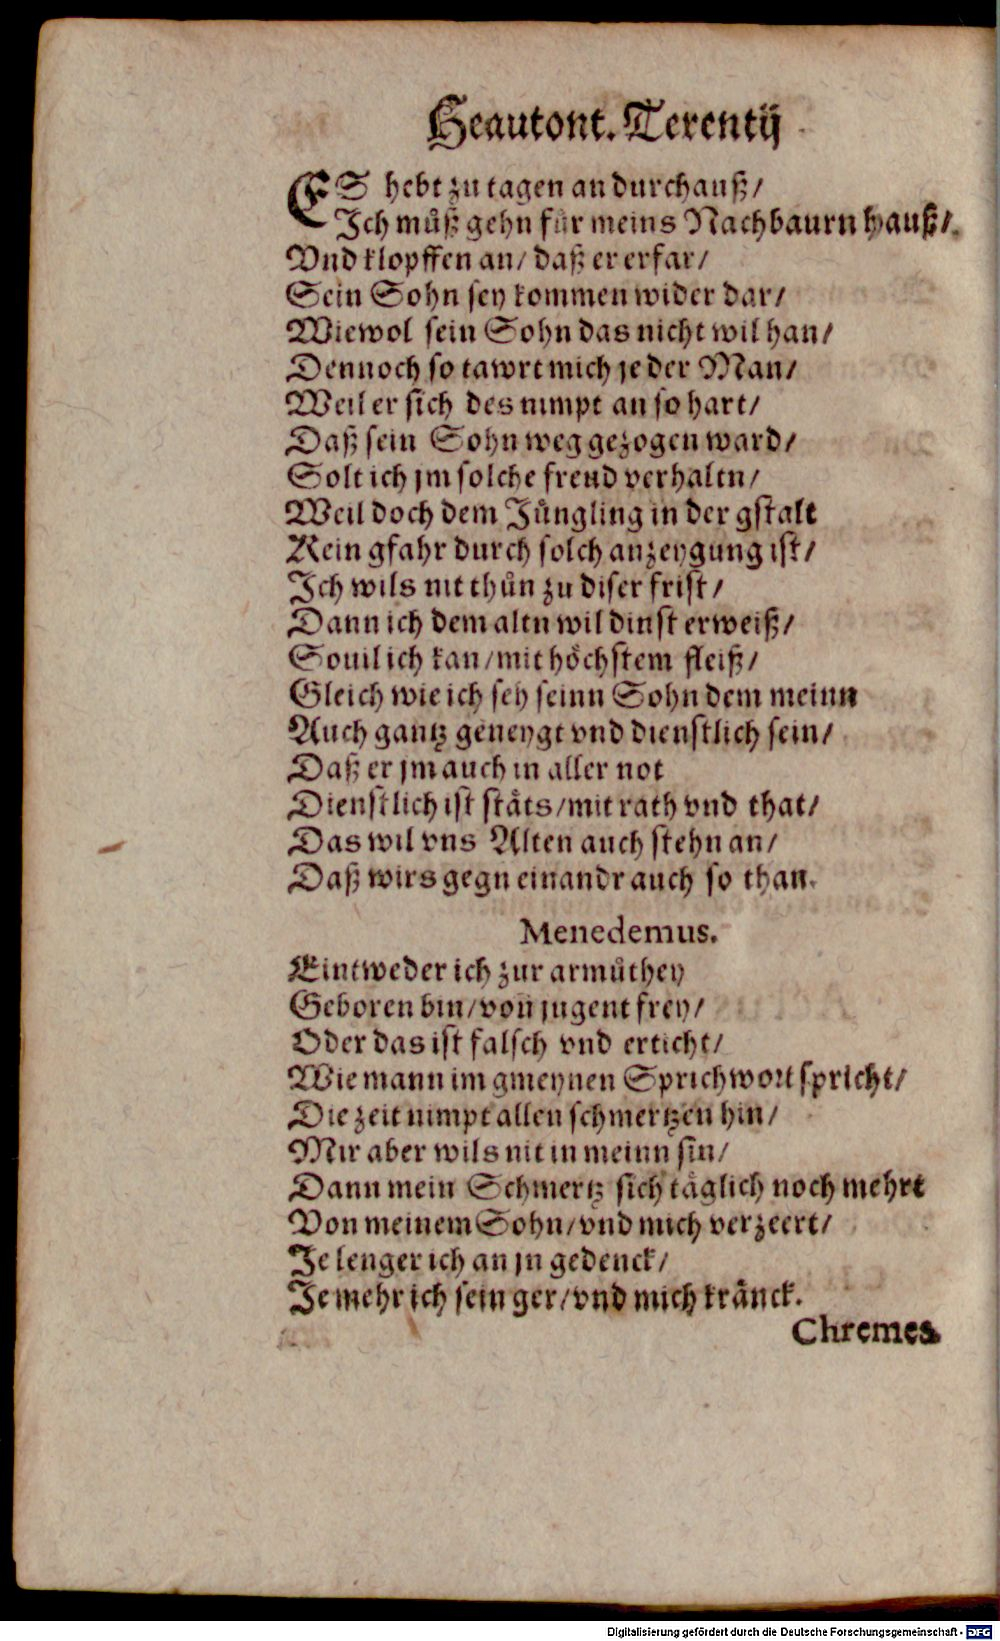 Heautont. Terentij
ES hebt zu tagen an durchauß/
Ich můß gehn für meins Nachbaurn hauß/
Vnd klopffen an/ daß er erfar/
Sein Sohn sey kommen wider dar/
Wiewol sein Sohn das nicht wil han/
Dennoch so tawrt mich je der Man/
Weil er sich des nimpt an so hart/
Daß sein Sohn weg gezogen ward/
Solt ich jm solche freud verhaltn/
Weil doch dem Jüngling in der gstalt
Kein gfahr durch solch anzeygung ist/
Ich wils nit thůn zu diser frist/
Dann ich dem altn wil dinst erweiß/
Souil ich kan/ mit höchstem fleiß/
Gleich wie ich seh seinn Sohn dem meinn
Auch gantz geneygt vnd dienstlich sein/
Daß er jm auch in aller not
Dienstlich ist stäts/ mit rath vnd that/
Das wil vns Alten auch stehn an/
Daß wirs gegn einandr auch so than.
Menedemus.
Eintweder ich zur armůthey
Geboren bin/ von jugent frey/
Oder das ist falsch vnd erticht/
Wie mann im gmeynen Sprichwort spricht/
Die zeit nimpt allen schmertzen hin/
Mir aber wils nit in meinn sin/
Dann mein Schmertz sich täglich noch mehrt
Von meinem Sohn/ vnd mich verzeert/
Je lenger ich an jn gedenck/
Je mehr ich sein ger/ vnd mich kränck.
Chremes.
Digitalisierung gefördert durch die Deutsche Forschungsgemeinschaft - DFG